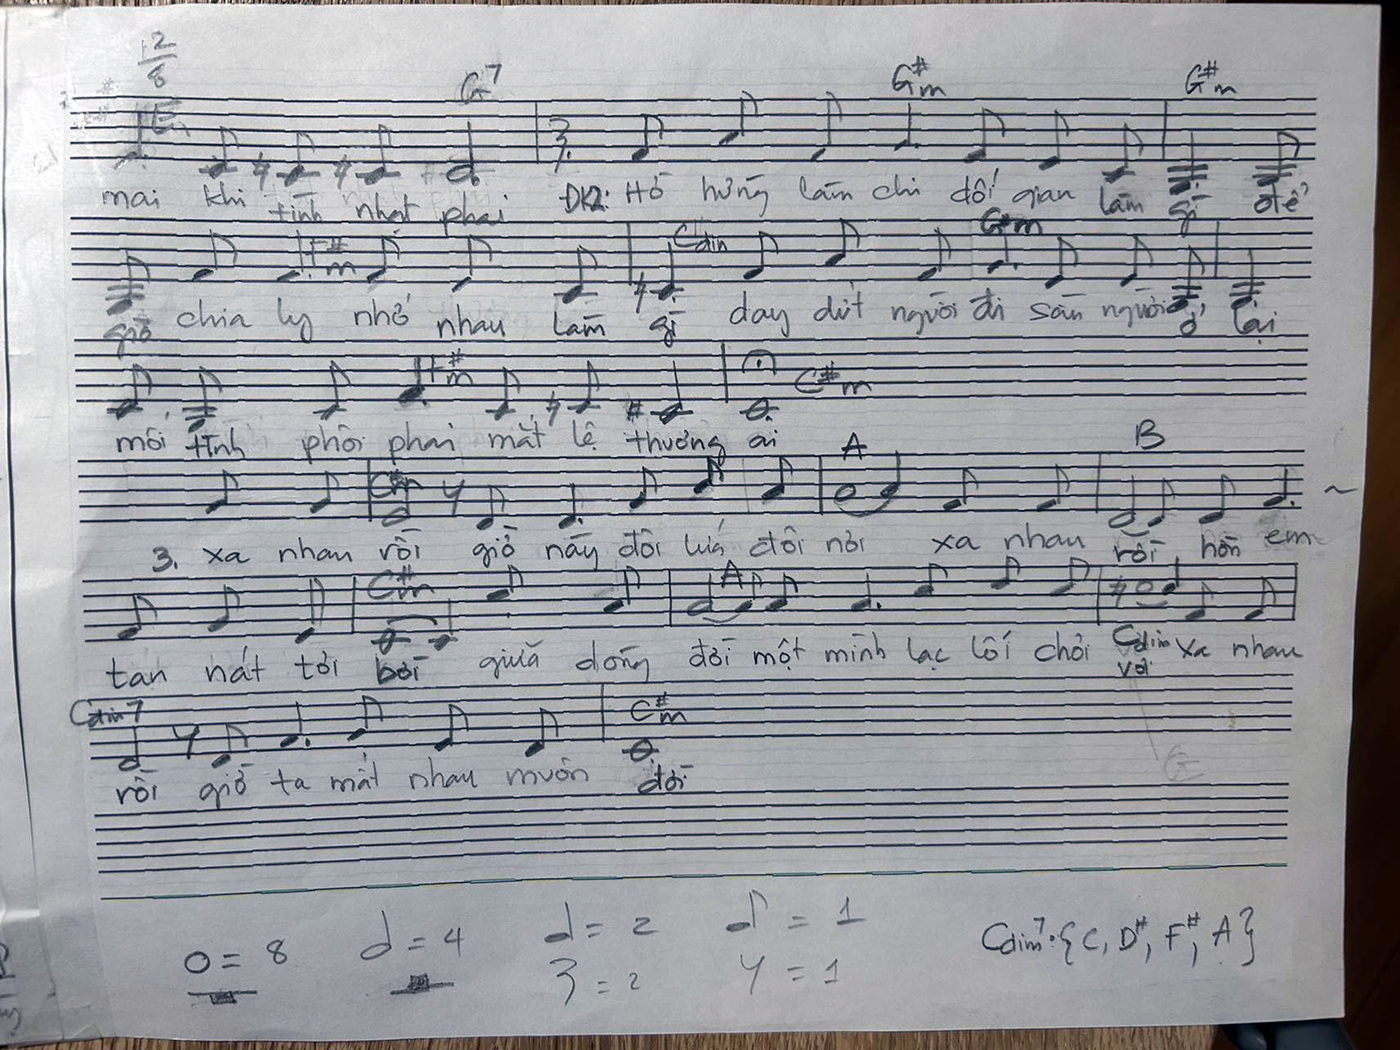 12
8
E G7 G#m G#m
mai khi tình nhạt phai ĐK2: Hờ hững làm chi dối gian làm gì để
F#m Cdim G#m
giờ chia ly nhớ nhau làm gì day dứt người đi sân người ở lại
F#m C#m
mối tình phôi phai mắt lệ thương ai
C#m A B
3. xa nhau rồi giờ này đôi lứa đôi nơi xa nhau rồi hồn em
C#m A Cdim
tan nát tơi bời giữa dòng đời một mình lạc lối chơi vơi xa nhau
Cdim7 C#m
rồi giờ ta mất nhau muôn đời
G
o = 8 d = 4 d = 2 ♪ = 1 Cdim7: {C, D#, F#, A}
𝄽 = 2 𝄾 = 1